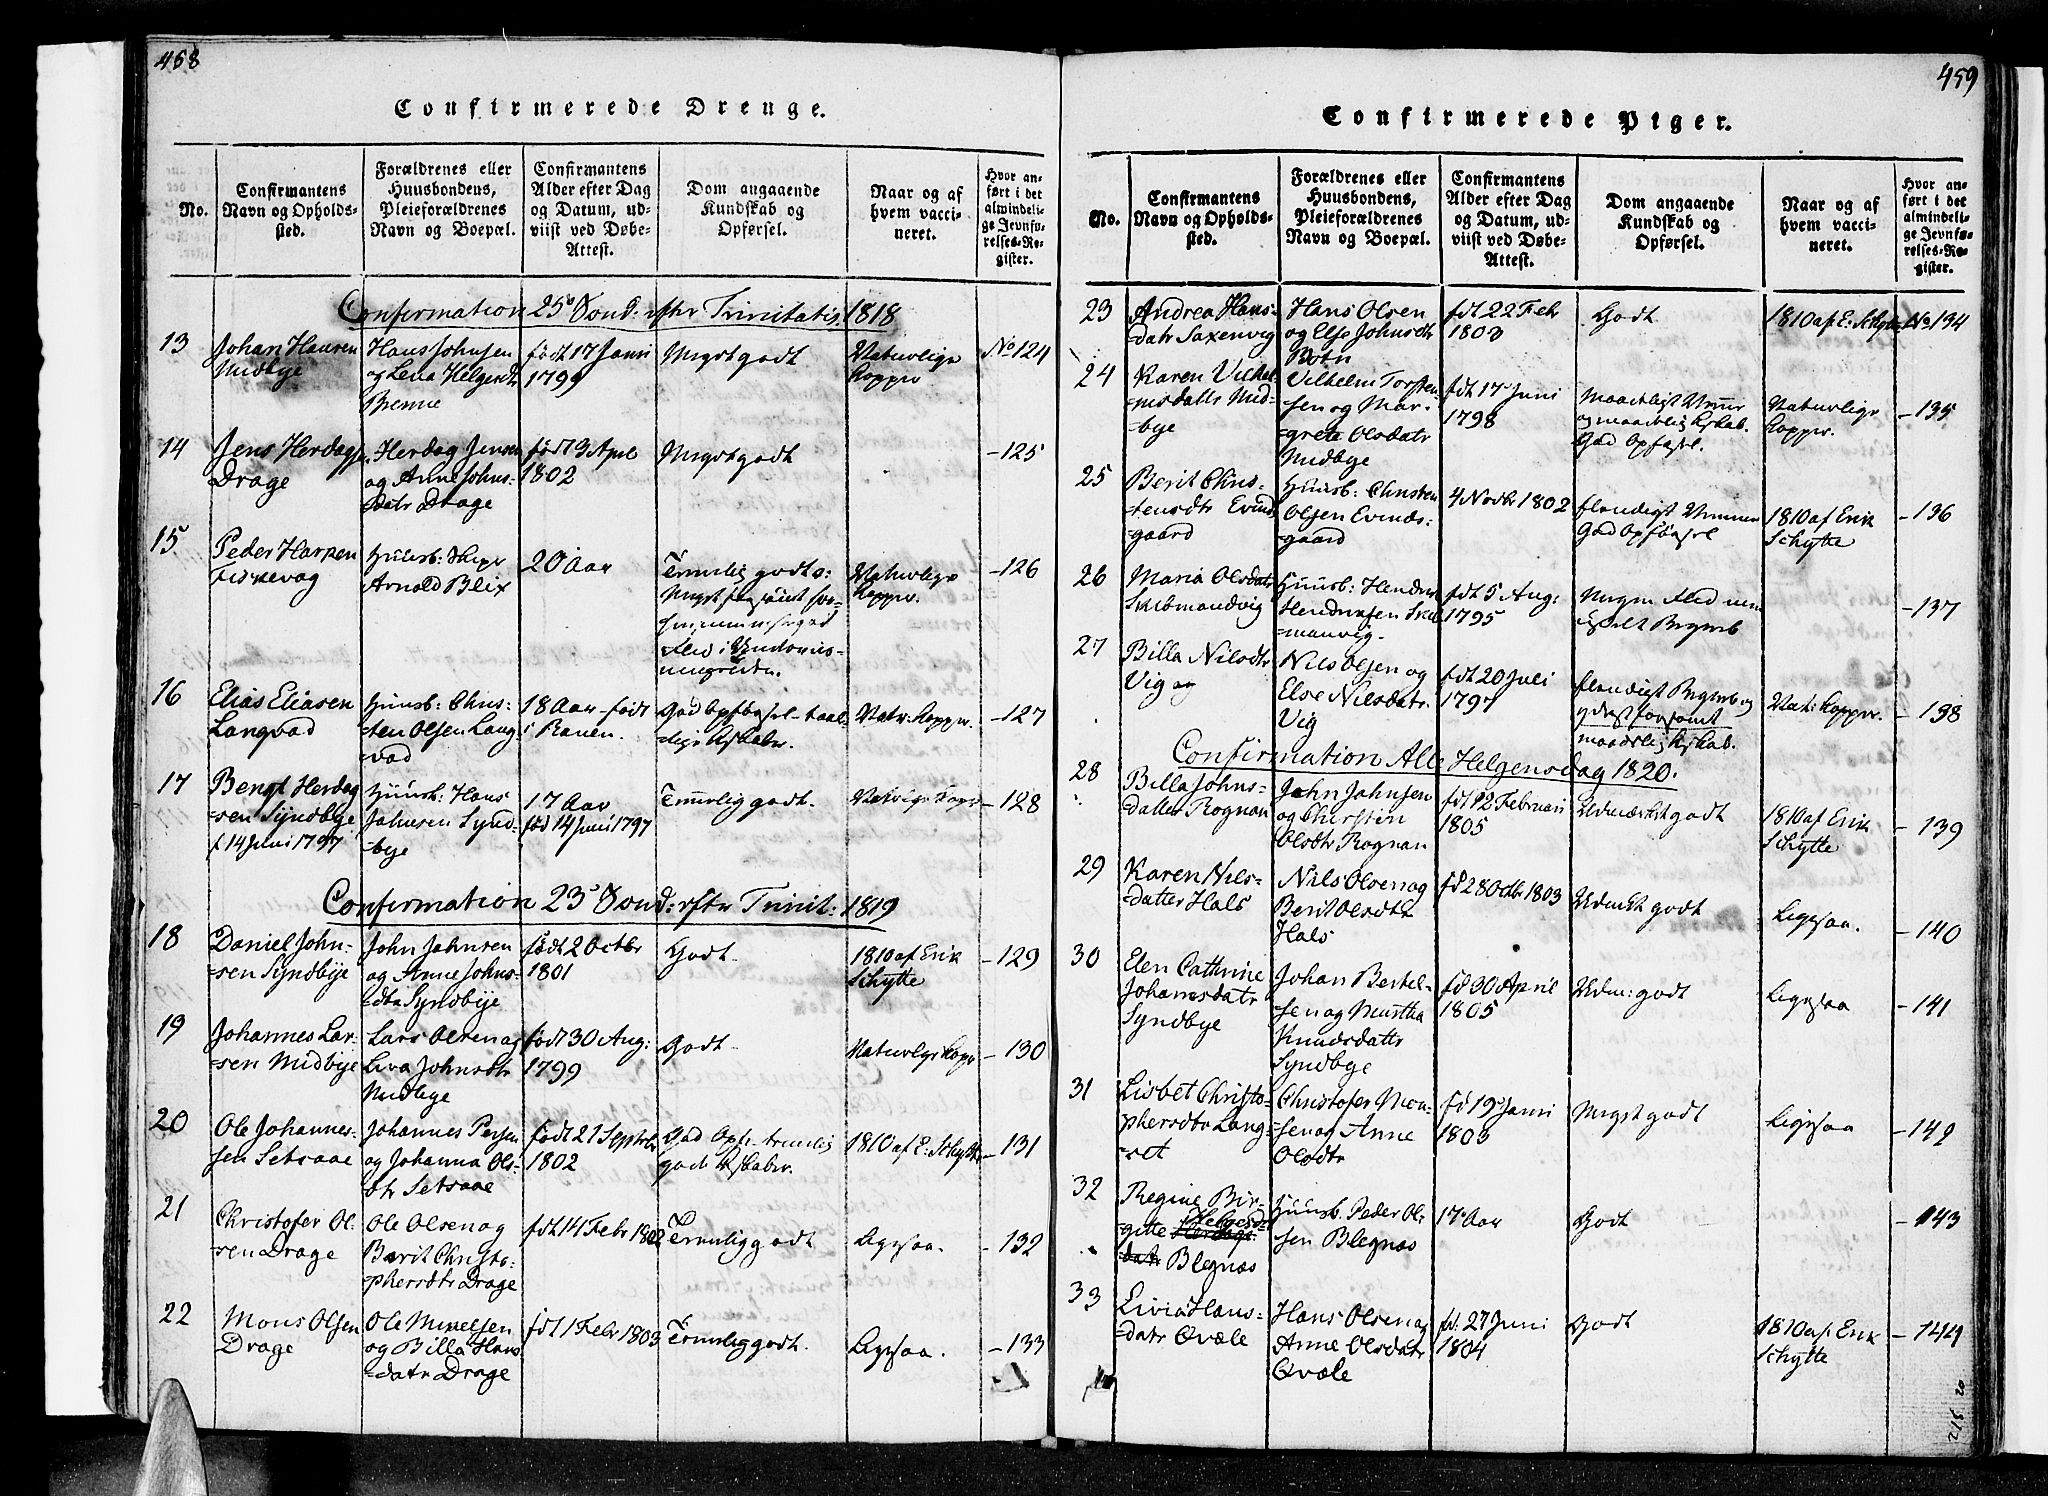 458
Confirmerede Drenge.
No.
Confirmantens
Navn og Opholds-
sted.
Forældrenes eller
Huusbondens,
Pleieforældrenes
Navn og Boepæl.
Confirmantens
Alder efter Dag
og Datum, ud-
viist ved Døbe-
Attest.
Dom angaaende
Kundskab og
Opførsel.
Naar og af
hvem vacci-
neret.
Hvor an-
ført i det
almindeli-
ge Jevnfø-
relses-Re-
gister.
Confirmation 25de Sönd: efter Trinitatis 1818
13
Johan Hansen
Midbye
Hans Johnsen
og Lena Helgesdtr
Brenne
födt 17 Januri
1799
Megetgodt
Naturlige
Kopper
No 124
14
Jens Herdagsen
Drage
Herdag Jensen
og Anne Johns-
datr Drage
födt 3 April
1802
Megetgodt
-125
15
Peder Harzen
Fiskevog
Huusb: Skipr
Arnold Blix
20 Aar
Temelig godt:
Naturlige
Kopper.
-126
16
Elias Eliasen
Langvad
Huusb: Chris-
ten Olsen Lang-
vad
18 Aar-födt
i Ranen.
God Opförsel-
Natr: Kopper.
-127
17
Bengt Herdag
-sen Syndbye
f 14 Juni 1797
Huusb: Hans
Johnsen Synd-
bye
17 Aar
föd 14 Juni 1797
Temelig godt.
Naturlige Kopper
-128
Confirmation 23de Sönd: efter Trinit: 1819
18
Daniel John-
-sen Syndbye
John Johnsen
og Anne Johns-
-dtr Syndbye
födt 2 Octbr
1801
Godt-
1810 af Erik
Schytte
-129
19
Johannes Lar-
-sen Midbye
Lars Olsen og
Liva Johnsdtr
Midbye
födt 30 Aug:
1799
Godt-
Naturlige Kopper
-130
20
Ole Johannes-
sen Setsaae
Johannes Persen
og Johanna Ols-
dtr Setsaae
födt 21 Septebr
1802
God Opf: temelig
gode Kskaber.
1810 af E: Schytte
-131
21
Christofer Ol-
-sen Drage
Ole Olsen og
Berit Christo-
-phersdtr Drage
födt 14 Febr 1802
Temelig godt
Ligesaa.
-132
22
Mons Olsen
Drage
Ole Mikelsen
og Billa Hans
-datr Drage
födt 1 Febr 1803
Temelig godt.
Ligesaa.
-133
459
Confirmerede Piger.
No.
Confirmantens
Navn og Opholds-
sted.
Forældrenes eller
Huusbondens,
Pleieforældrenes
Navn og Boepæl.
Confirmantens
Alder efter Dag
og Datum, ud-
viist ved Døbe-
Attest.
Dom angaaende
Kundskab og
Opførsel.
Naar og af
hvem vacci-
neret.
Hvor an-
ført i det
almindeli-
ge Jevnfø-
relses-Re-
gister.
23
Andrea Hans-
-datr Saxenvig
Hans Olsen
og Else Johnsdtr
Botn
fdt 22 Febr
1803
Godt
1810 af E: Schytte
No 134
24
Karen Vilhel-
msdattr Mid-
-bye
Vilhelm Torsten-
sen og Mar-
-grete Olsdatr
Midbye
fdt 17 Juni
1798
God Opførsel.
Naturlige
Kopper.
-135
25
Berit Chris-
-tensdtr Evens-
-gaard
Huusb: Christen
Olsen Evens-
-gaard
4 Novbr 1802
God Opförsel
1810 af Erik
Schytte
-136
26
Maria Olsdatr
Skibmandvig
Huusb: Hendrik
Hendriksen Skib-
manvig.
fdt 5 Aug:
1795
-137
27
Billa Nilsdtr
Vig
Nils Olsen og
Else Nilsdatr.
Vig
fdt 20 Juli
1797
maadelig Kskab.
Nat: Kopper.
-138
Confirmation Alle Helgensdag 1820.
28
Billa Johns-
-datter Rognan
John Johnsen
og Chirsten
Olsdtr Rognan
fdt 12 Februari
1805
Udmærket godt
1810 af Erik
Schytte
-139
29
Karen Nils-
-datter Hals
Nils Olsen og
Berit Olsdtr
Hals
fd 28 Octbr 1803
Udmkt godt
Ligesaa.
-140
30
Elen Cathrine
Johansdatr
Syndbye
Johan Bertel-
sen og Martha
Knudsdattr
Syndbye
fd 30 April
1805
Udm: godt
Ligesaa
-141
31
Lisbet Christo-
phersdtr Lang-
-set
Christofer Mon-
sen og Anne
Olsdtr
fd 19 Januri
1803
Megetgodt
Ligesaa
-142
32
Regine Bir-
-gitte Helgesd
Blegnæs
Huusb. Peder Ol-
sen Blegnæs
17 Aar
Godt
-143
33
Livia Hans-
-datr Qvæle
Hans Olsen og
Anne Olsdatr
Qvæle
fd: 27 Juni
1804
Godt
1810 af: Erik
Schytte
-144